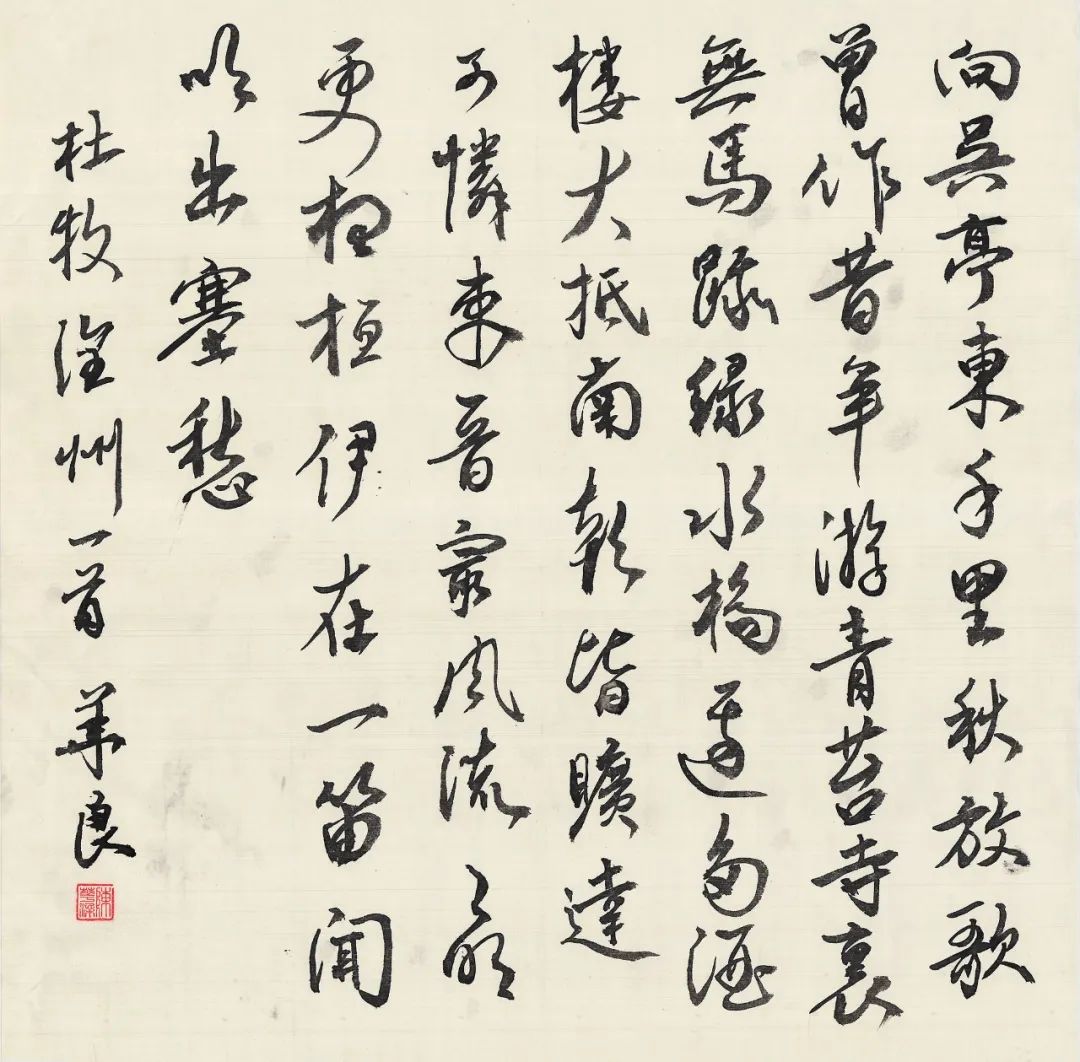 向吳亭東千里秋放歌
曾作昔年游青苔寺裏
無馬跡綠水橋邊多酒
樓大抵南朝皆曠達
可憐東晉最風流月明
更想桓伊在一笛聞
吹出塞愁
杜牧潤州一首 華良
陳華良